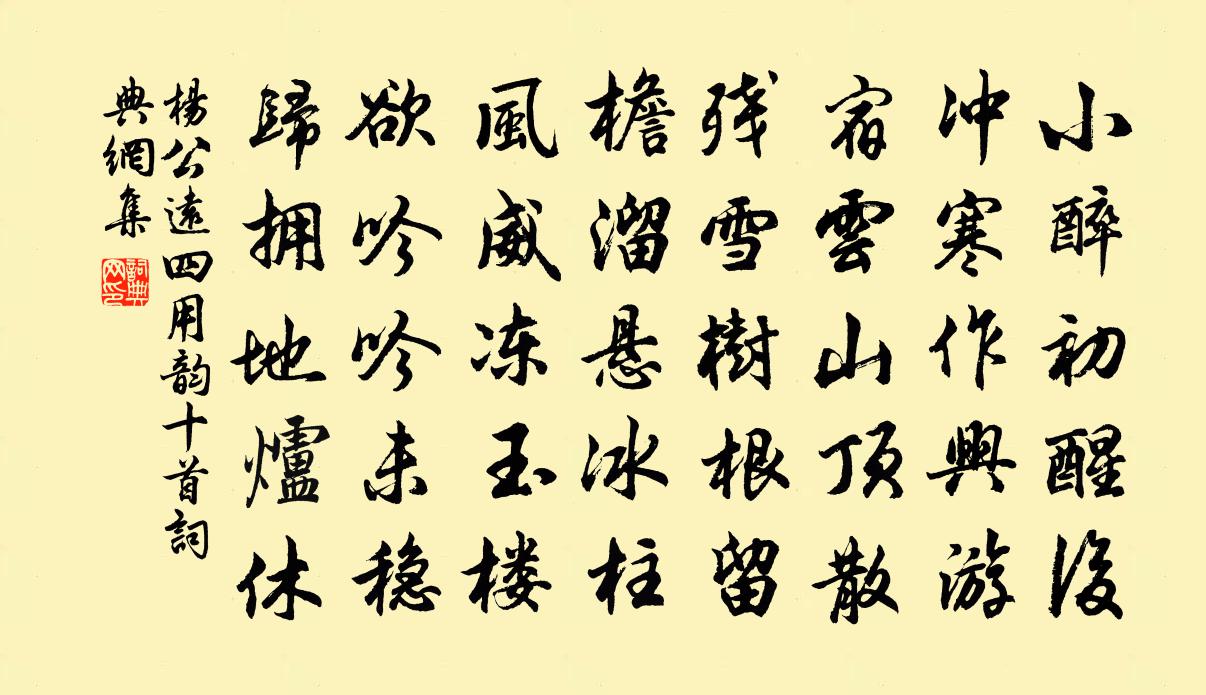 小醉初醒後
冲寒作興游
宿雲山頂散
残雪樹根留
檐溜悬冰柱
風威冻玉楼
欲吟吟未穏
歸拥地爐休
楊公遠四用韵十首詞
典網集
詞典网印